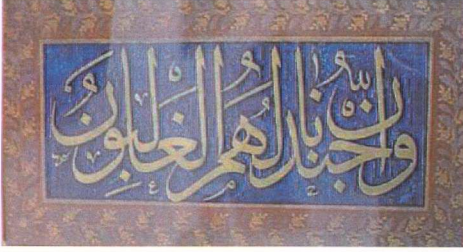 وان جندنا لهم الغالبون